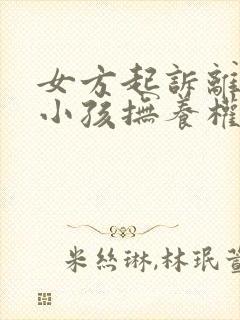 女方起訴離
小孩撫養權
米絲琳,林珉萱